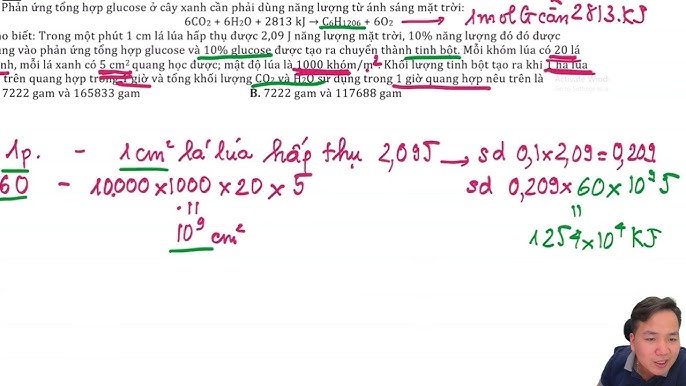 Phản ứng tổng hợp glucose ở cây xanh cần phải dùng năng lượng từ ánh sáng mặt trời:
6CO2 + 6H2O + 2813 kJ → C6H12O6 + 6O2
1mol G cần 2813.KJ
o biết: Trong một phút 1 cm lá lúa hấp thụ được 2,09 J năng lượng mặt trời, 10% năng lượng đó đó được
ng vào phản ứng tổng hợp glucose và 10% glucose được tạo ra chuyển thành tinh bột. Mỗi khóm lúa có 20 lá
nh, mỗi lá xanh có 5 cm² quang học được; mật độ lúa là 1000 khóm/m². Khối lượng tinh bột tạo ra khi 1 ha lúa
trên quang hợp trong 1 giờ và tổng khối lượng CO2 và H2O sử dụng trong 1 giờ quang hợp nêu trên là
7222 gam và 165833 gam B. 7222 gam và 117688 gam
1p. - 1cm² lá lúa hấp thụ 2,09J → sd 0,1×2,09=0,209
60 - 10.000×1000×20×5 sd 0,209×60×10⁹J
10⁹ cm² 1254×10⁴ KJ